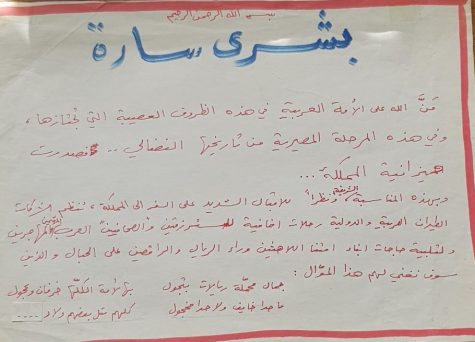 بسم الله الرحمن الرحيم
بشرى سارة
مَنَّ الله على الأمة العربية في هذه الظروف العصيبة التي تجتازها،
وفي هذه المرحلة المصيرية من تاريخها النضالي .. فصدرت
ميزانية المملكة ...
وبهذه المناسبة الشريفة، ونظراً للاقبال الشديد على السفر الى المملكة، ستنظم شركات
الطيران العربية والدولية رحلات اضافية والصحافيين العرب المهاجرين
ولتلبية حاجات ابناء امتنا اللاهثين وراء الريال والراقصين على الحبال والذين
سوف نغني لهم هذا الموّال :
جمال محمّلة ريالات بتجول
يا أمة الكلّها خرفان وعجول
ما حدا خايف ولا حدا مخجول
كلهم مثل بعضهم ولاد ....